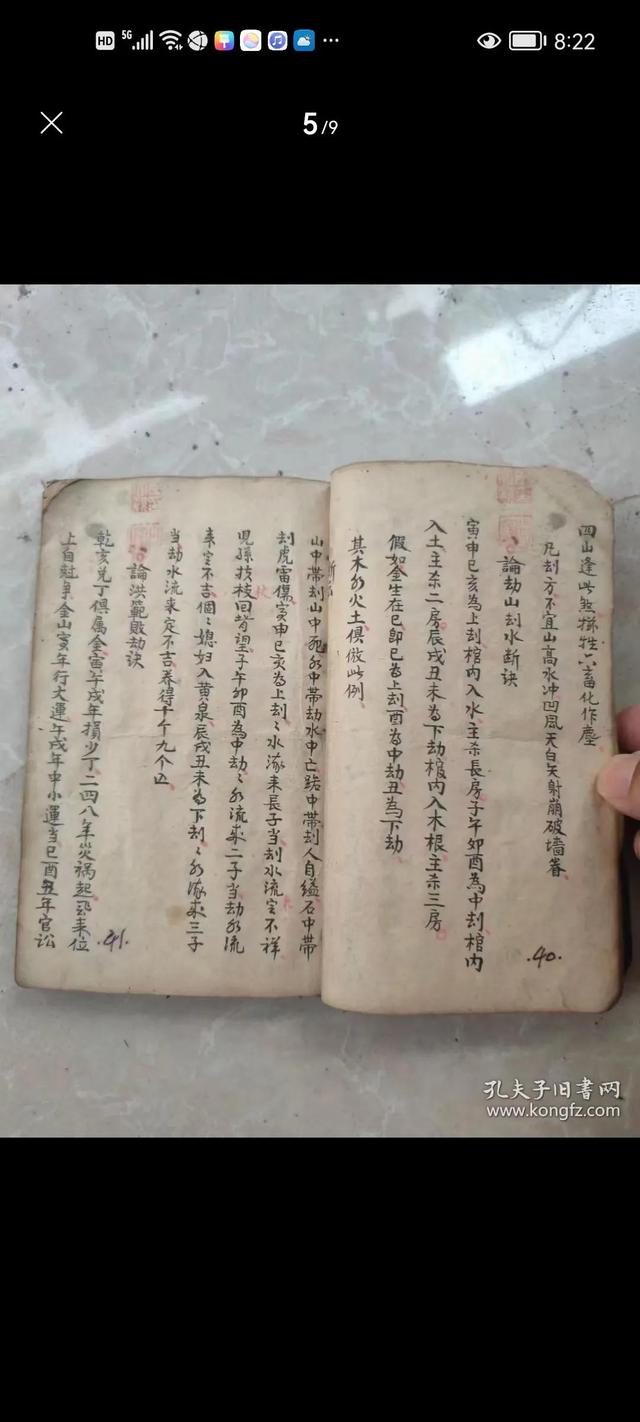 HD 5G 8:22
5/9
四山逢此煞操牲六畜化作塵
凡刦方不宜山高水冲凹風天白矢射崩破墻眷
論劫山刦水断诀
寅申巳亥為上刦棺內入水主杀長房子午卯酉為中刦棺內
入土主杀二房辰戌丑未為下劫棺內入木根主杀三房
假如金生在巳即巳為上刦酉為中劫丑為下劫
其木水火土俱倣此例
山中帶刦山中死水中帶劫水中亡路中帶刦人自缢石中帶
刦虎雷傷寅申巳亥為上刦水流来長子当刦水流定不祥
児孫技枝回背望子午卯酉為中劫水流來二子当劫水流
来定不吉個媳妇入黄泉辰戌丑未為下刦水流來三子
当劫水流来定不吉养得十个九个亡
論洪範敗劫诀
乾亥兑丁俱属金寅午戌年損少丁二四八年災祸起来位
上自尅身金山寅年行大運午戌年中小運当巳酉丑年官訟
.40.
.41.
孔夫子旧書网
www.kongfz.com